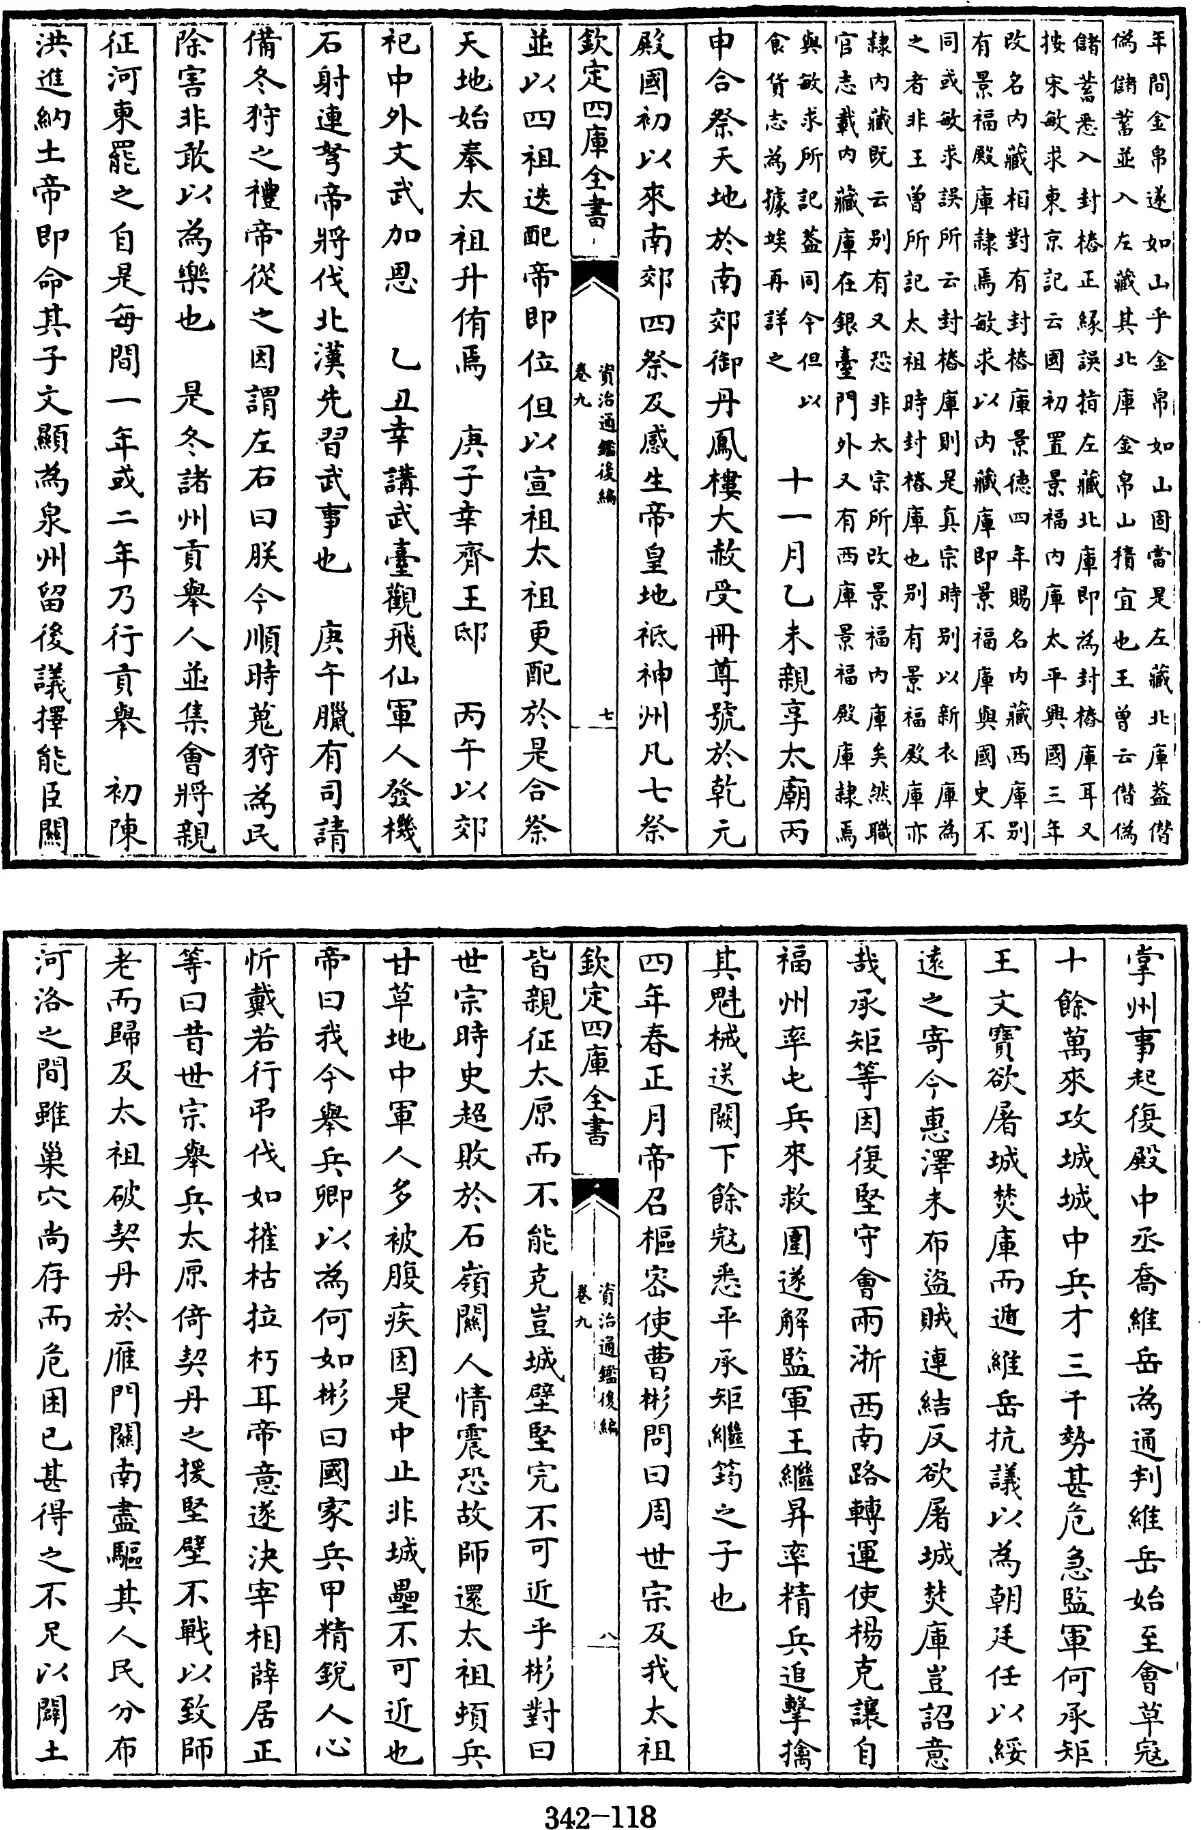 年間金帛遂如山乎金帛如山固當是左藏北庫葢僭
偽儲蓄並入左藏其北庫金帛山積宜也王曾云僭偽
儲蓄悉入封樁正緣誤指左藏北庫即為封樁庫耳又
按宋敏求東京記云國初置景福内庫太平興國三年
改名内藏相對有封樁庫景德四年賜名内藏西庫别
有景福殿庫隷焉敏求以内藏庫即景福庫與國史不
同或敏求誤所云封樁庫則是真宗時别以新衣庫為
之者非王曾所記太祖時封樁庫也别有景福殿庫亦
隷内藏既云别有又恐非太宗所改景福内庫矣然職
官志載内藏庫在銀臺門外又有西庫景福殿庫隷焉
與敏求所記葢同今但以
食貨志為據竢再詳之
十一月乙未親享太廟丙
申合祭天地於南郊御丹鳳樓大赦受冊尊號於乾元
殿國初以來南郊四祭及感生帝皇地祗神州凡七祭
欽定四庫全書
資治通鑑後編
卷九
七
並以四祖迭配帝即位但以宣祖太祖更配於是合祭
天地始奉太祖升侑焉 庚子幸齊王邸 丙午以郊
祀中外文武加恩 乙丑幸講武臺觀飛仙軍人發機
石射連弩帝將伐北漢先習武事也 庚午臘有司請
備冬狩之禮帝從之因謂左右曰朕今順時蒐狩為民
除害非敢以為樂也 是冬諸州貢舉人並集會將親
征河東罷之自是每間一年或二年乃行貢舉 初陳
洪進納土帝即命其子文顯為泉州留後議擇能臣關
掌州事起復殿中丞喬維岳為通判維岳始至會草寇
十餘萬來攻城城中兵才三千勢甚危急監軍何承矩
王文寶欲屠城焚庫而遁維岳抗議以為朝廷任以綏
遠之寄今惠澤未布盜賊連結反欲屠城焚庫豈詔意
哉承矩等因復堅守會兩浙西南路轉運使楊克讓自
福州率屯兵來救圍遂解監軍王繼昇率精兵追擊擒
其魁械送闕下餘寇悉平承矩繼筠之子也
四年春正月帝召樞密使曹彬問曰周世宗及我太祖
欽定四庫全書
資治通鑑後編
卷九
八
皆親征太原而不能克豈城壁堅完不可近乎彬對曰
世宗時史超敗於石嶺關人情震恐故師還太祖頓兵
甘草地中軍人多被腹疾因是中止非城壘不可近也
帝曰我今舉兵卿以為何如彬曰國家兵甲精銳人心
忻戴若行弔伐如摧枯拉朽耳帝意遂決宰相薛居正
等曰昔世宗舉兵太原倚契丹之援堅壁不戰以致師
老而歸及太祖破契丹於雁門關南盡驅其人民分布
河洛之間雖巢穴尚存而危困已甚得之不足以闢土
342-118